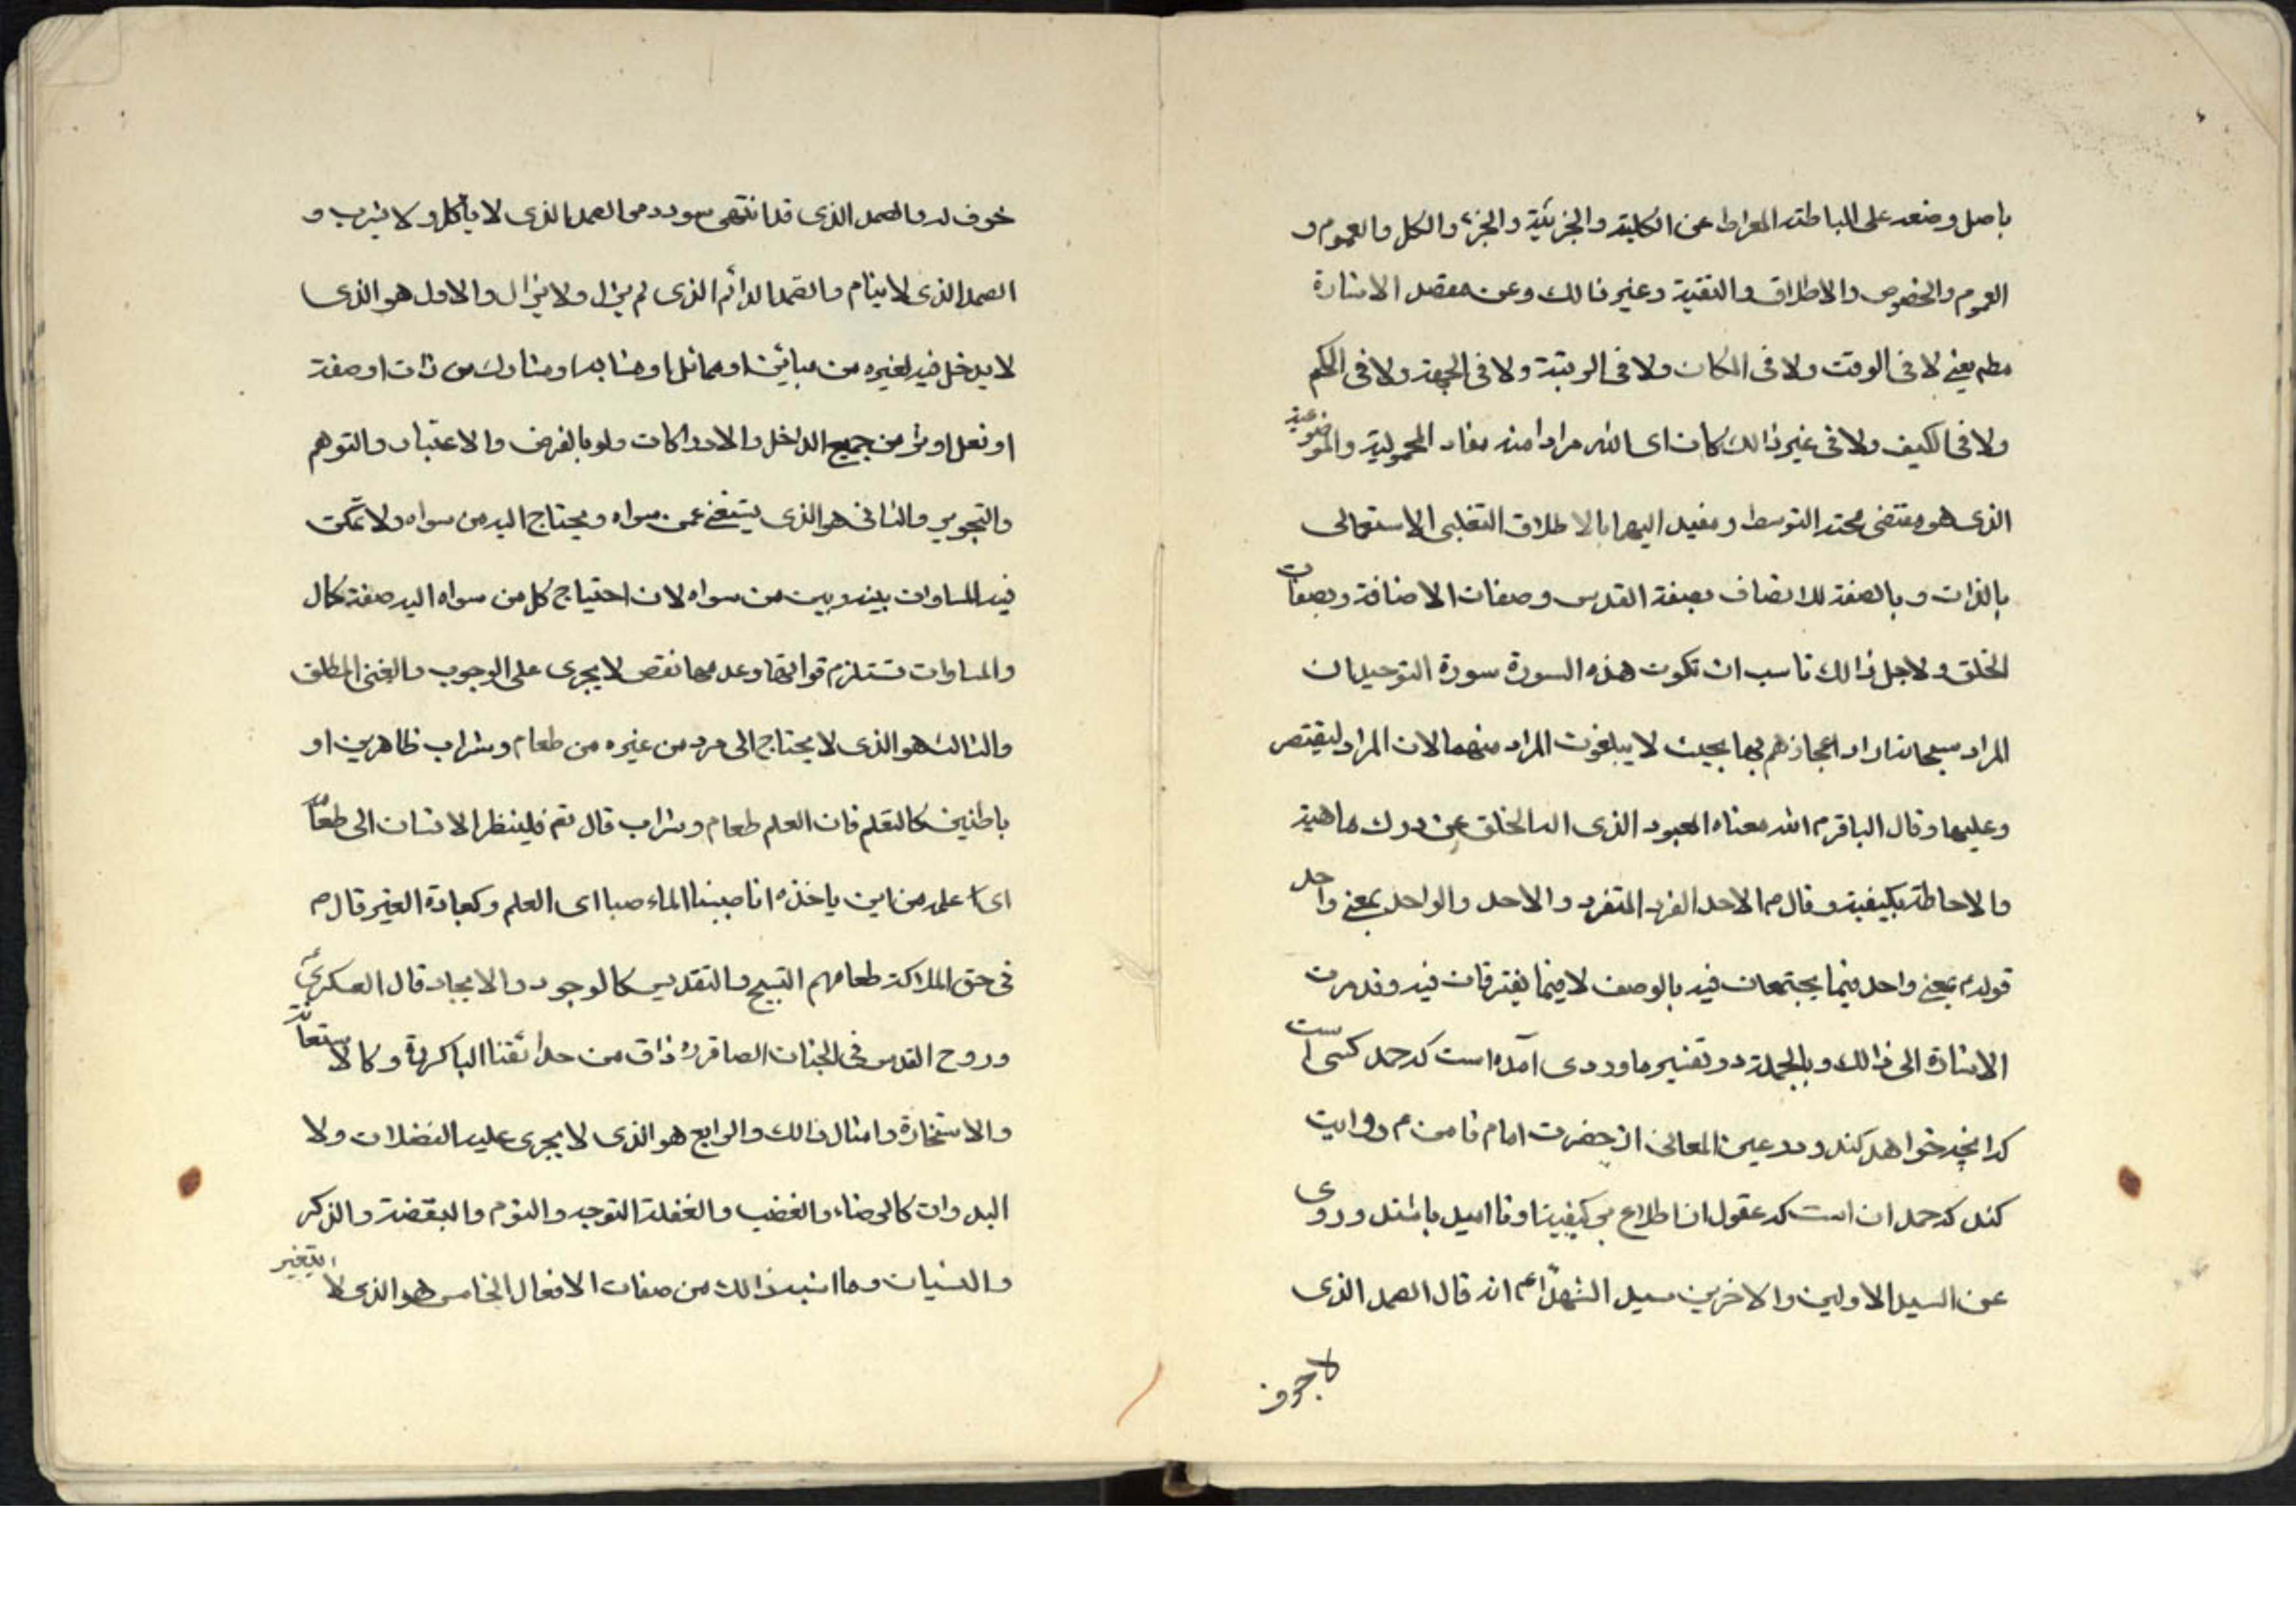 باصل وضعه على البساطة المعراط عن الكلية والجزئية والجزء والكل والعموم و
العموم والخصوص والاطلاق والتقيد وغير ذالك وعن مقصد الاشارة
مطم يعنى لا فى الوقت ولا فى المكان ولا فى الرتبة ولا فى الجهة ولا فى الكم
ولا فى الكيف ولا فى غير ذالك كان اى الله مرادا منه مفاد المحمولية والموضوعية
الذى هو مقتضى محتد التوسط ومفيد اليهما بالاطلاق التغلبى الاستعمالى
بالذات و بالصفة للاتصاف بصفة القدس وصفات الاضافة وبصفات
الخلق ولاجل ذالك ناسب ان تكون هذه السورة سورة التوحيد لان
المراد سبحانه اراد اعجازهم بها بحيث لا يبلغون المراد منهما لان المراد ليقتصر
وعليها وقال الباقرم الله معناه المعبود الذى اله الخلق عن درك ماهيته
والاحاطة بكيفيته وقال م الاحد الفرد المتفرد والاحد والواحد بمعنى واحد
قوله م بمعنى واحد فيما يجتمعان فيه بالوصف لا فيما يفترقان فيه وقد مرت
الاشارة الى ذالك وبالجملة در تفسير ماوردى آمده است كه صمد كسى است
كه انچه خواهد كند و در عين المعانى از حضرت امام ثامن م روايت
كند كه صمد ان است كه عقول از اطلاع بر كيفيت او نا اميد باشند وروى
عن السيد الاولين والاخرين سيد الشهداء م انه قال الصمد الذى
لا جوف
خوف له والصمد الذى قد انتهى سودده والصمد الذى لا يأكل ولا يشرب و
الصمد الذى لا ينام والصمد الدائم الذى لم يزل ولا يزال والاول هو الذى
لا يدخل فيه لغيره من مبائين او مماثل او مشابه او مشارك من ذات او صفة
او فعل او اثر من جميع المداخل والادراكات ولو بالفرض والاعتبار والتوهم
والتجويز والثانى هو الذى يستغنى عمن سواه ويحتاج اليه من سواه ولا تمكن
فيه المساوات بينه وبين من سواه لان احتياج كل من سواه اليه صفة كمال
والمساوات تستلزم فواتها وعدمها نقص لا يجرى على الوجوب والغنى المطلق
والثالث هو الذى لا يحتاج الى مرد من غيره من طعام وشراب ظاهرين او
باطنين كالتعلم فان العلم طعام وشراب قال تع فلينظر الانسان الى طعامه
اى علمه من اين ياخذه انا صببنا الماء صبا اى العلم وكعبادة الغير قال م
فى حق الملائكة طعامهم التسبيح والتقديس كالوجود والايجاد قال العسكرى م
وروح القدس فى الجنان الصاقرة ذاق من حدائقنا الباكرة وكالاستعانة
والاستخارة وامثال ذالك والرابع هو الذى لا يجرى عليه الفضلات ولا
البدوات كالرضاء والغضب والغفلة التوجه والنوم واليقضة والذكر
والنسيان وما اشبه ذالك من صفات الافعال الخامس هو الذى لا يتغير